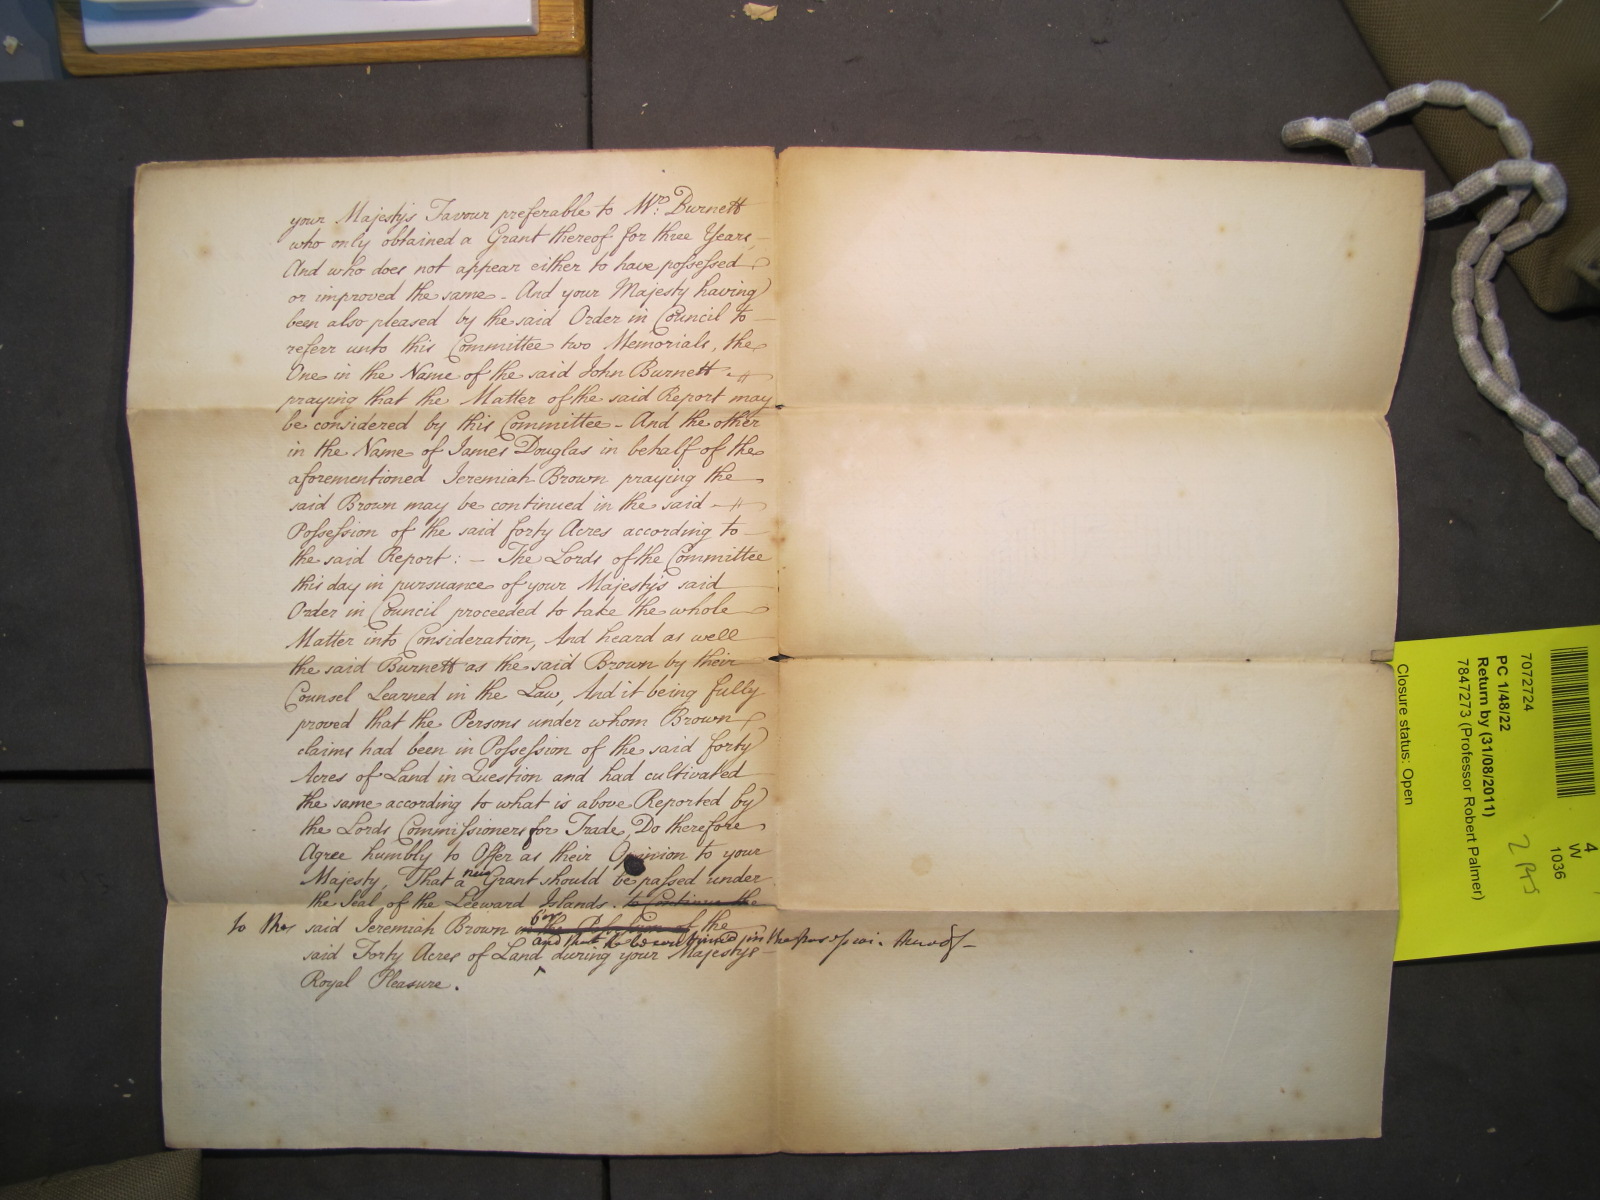 your Majesty's Favour preferable to Mr. Burnett
who only obtained a Grant thereof for three Years,
And who does not appear either to have possessed
or improved the same - And your Majesty having
been also pleased by the said Order in Council to
referr unto this Committee two Memorials, the
One in the Name of the said John Burnett
praying that the Matter of the said Report may
be considered by this Committee - And the other
in the Name of James Douglas in behalf of the
aforementioned Jeremiah Brown praying the
said Brown may be continued in the said
Possession of the said forty Acres according to
the said Report: - The Lords of the Committee
this day in pursuance of your Majesty's said
Order in Council proceeded to take the whole
Matter into Consideration, And heard as well
the said Burnett as the said Brown by their
Counsel Learned in the Law, And it being fully
proved that the Persons under whom Brown
claims had been in Possession of the said forty
Acres of Land in Question and had cultivated
the same according to what is above Reported by
the Lords Commissioners for Trade, Do therefore
Agree humbly to Offer as their Opinion to your
Majesty, That a new Grant should be passed under
the Seal of the Leeward Islands. to Continue the
to the said Jeremiah Brown in the Possession of the
for
and that he be continued in the possession thereof
said Forty Acres of Land during your Majesty's
Royal Pleasure.
4
W
1036
70727224
PC 1/48/22
Return by (31/08/2011)
7847273 (Professor Robert Palmer)
Closure status: Open
2 pts